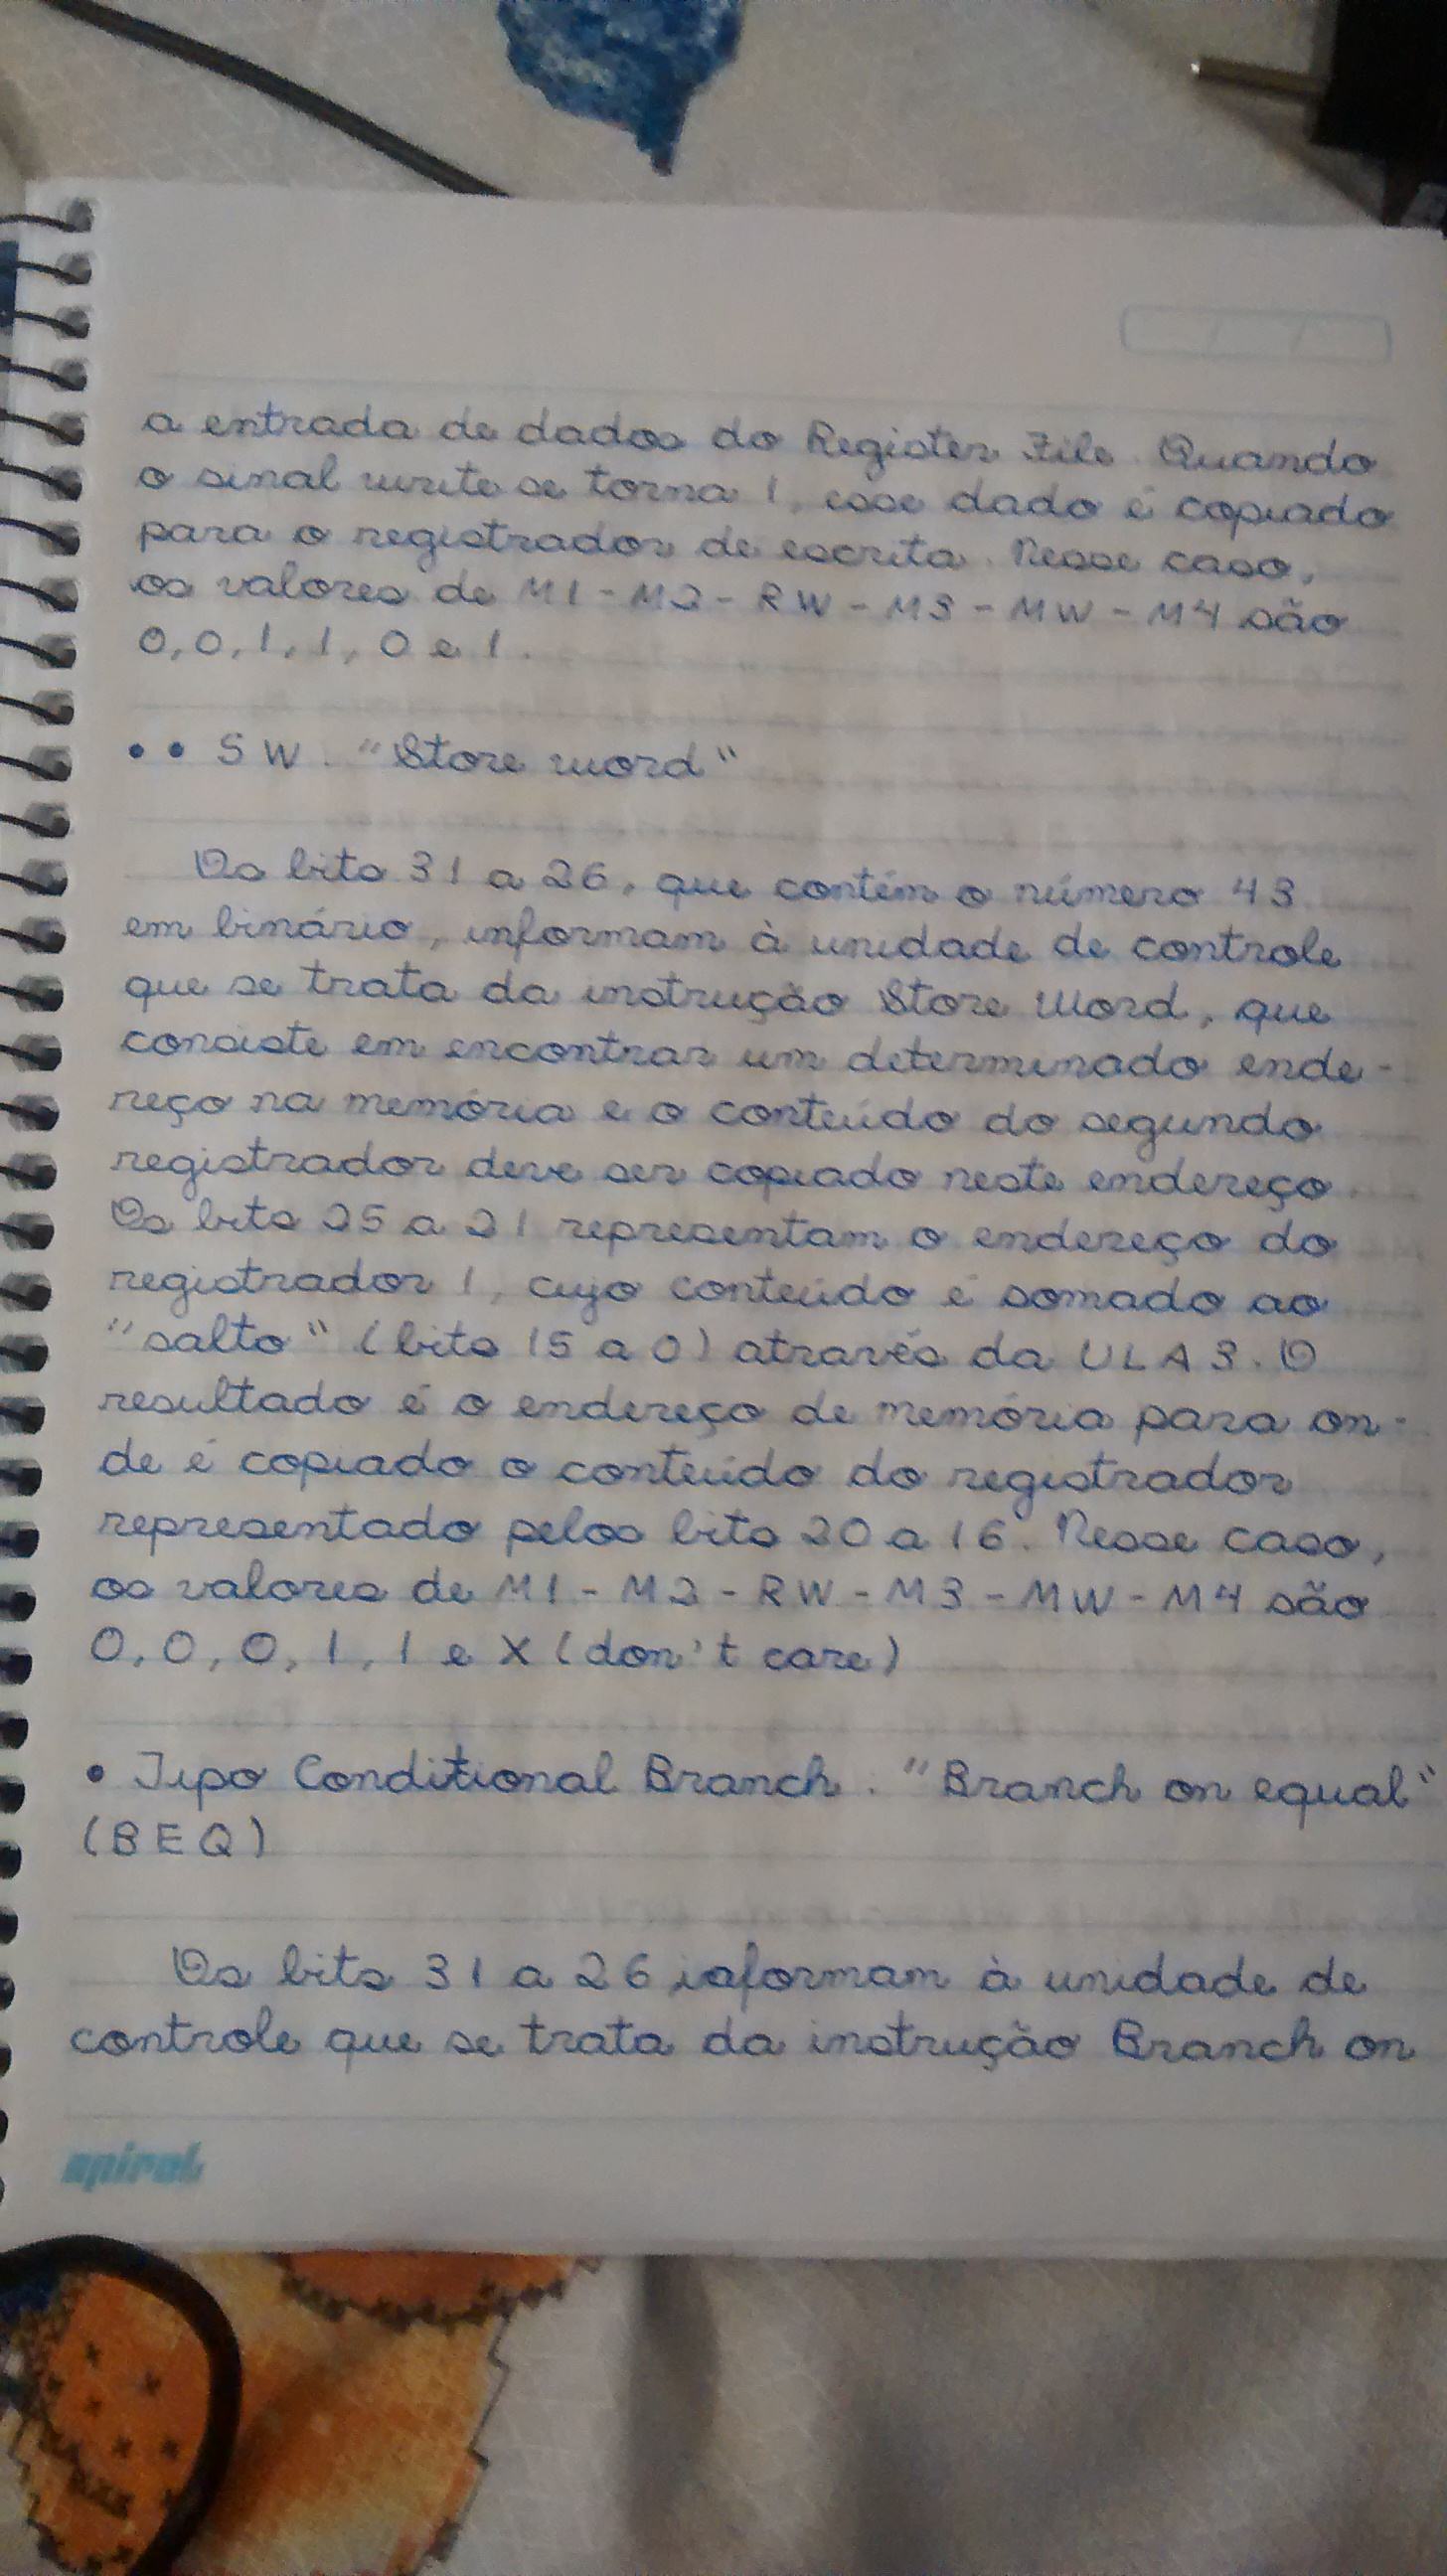 a entrada de dados do Register File. Quando
o sinal write se torna 1, esse dado é copiado
para o registrador de escrita. Nesse caso,
os valores de M1 - M2 - RW - M3 - MW - M4 são
0, 0, 1, 1, 0 e 1.
•• SW. "Store word"
Os bits 31 a 26, que contém o número 43
em binário, informam à unidade de controle
que se trata da instrução Store Word, que
consiste em encontrar um determinado ende-
reço na memória e o conteúdo do segundo
registrador deve ser copiado neste endereço.
Os bits 25 a 21 representam o endereço do
registrador 1, cujo conteúdo é somado ao
"salto" (bits 15 a 0) através da ULA 3. O
resultado é o endereço de memória para on-
de é copiado o conteúdo do registrador
representado pelos bits 20 a 16. Nesse caso,
os valores de M1 - M2 - RW - M3 - MW - M4 são
0, 0, 0, 1, 1 e X (don't care)
• Tipo Conditional Branch. "Branch on equal"
(BEQ)
Os bits 31 a 26 informam à unidade de
controle que se trata da instrução Branch on
spiral